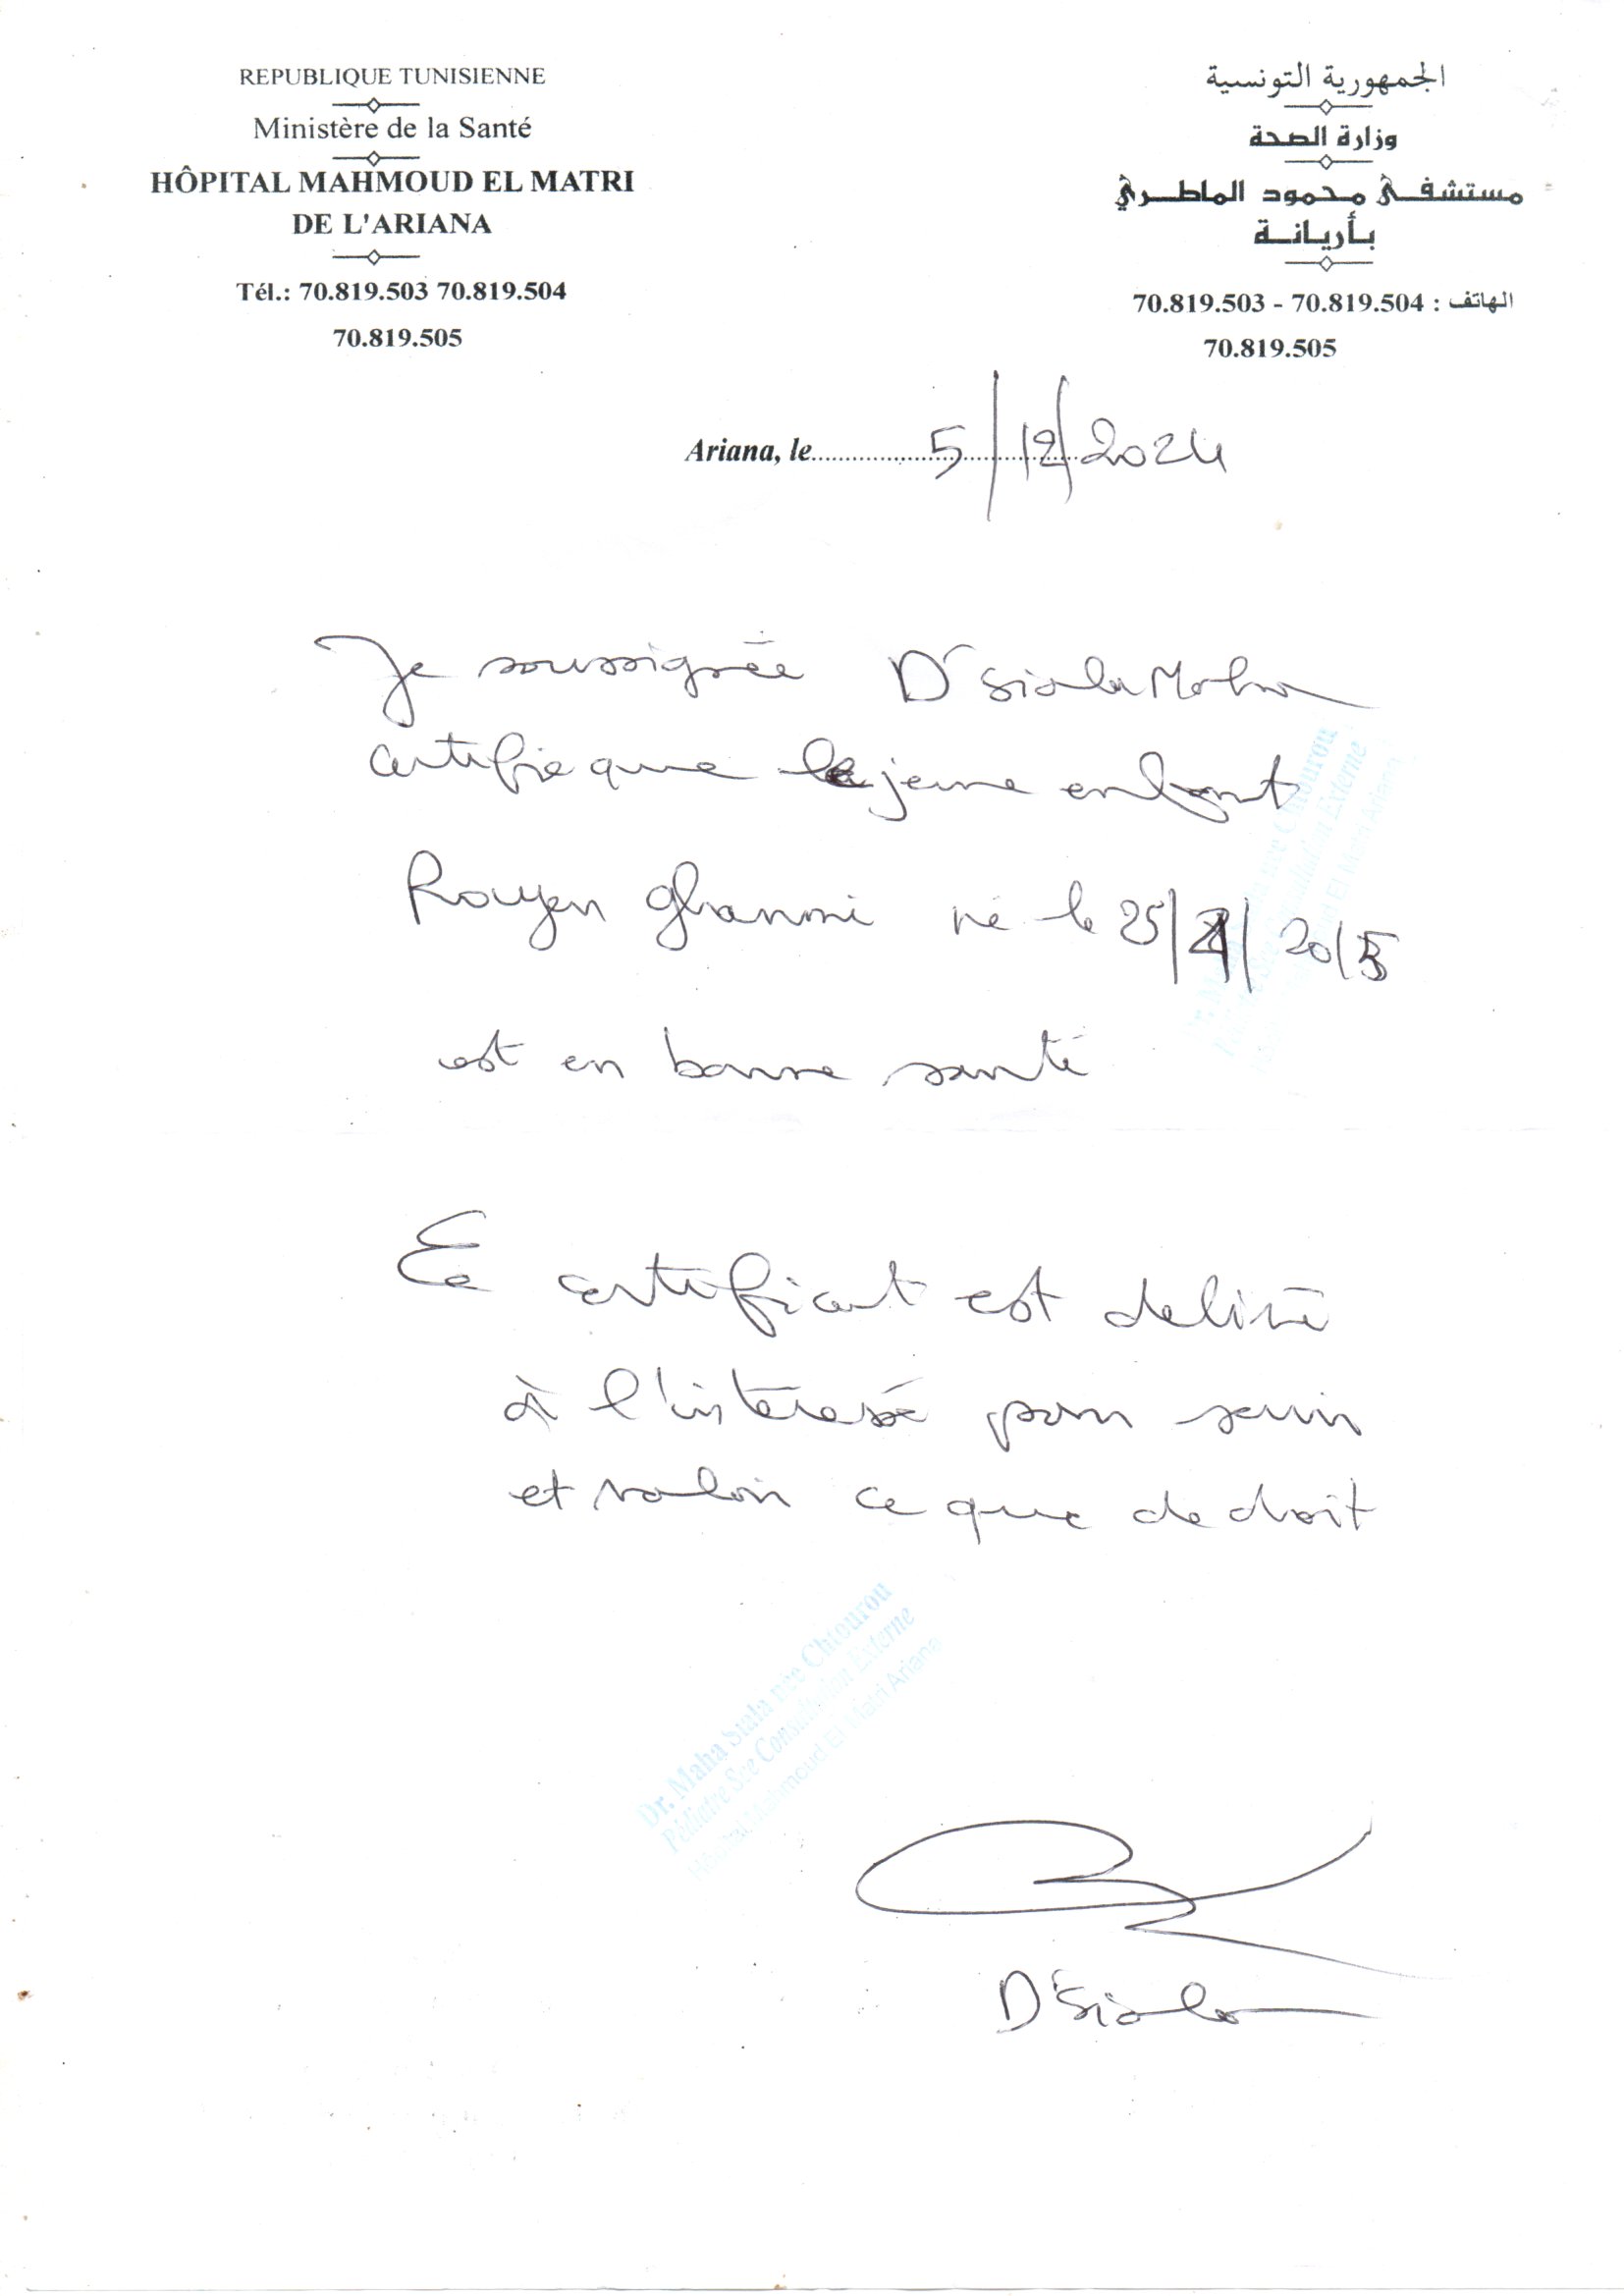 REPUBLIQUE TUNISIENNE
Ministère de la Santé
HÔPITAL MAHMOUD EL MATRI
DE L'ARIANA
Tél.: 70.819.503 70.819.504
70.819.505
الجمهورية التونسية
وزارة الصحة
مستشفى محمود الماطري
بأريانة
الهاتف : 70.819.504 - 70.819.503
70.819.505
Ariana, le 5/12/2024
Je soussignée Dr Siala Maha
certifie que le jeune enfant
Rouyen Ghanmi né le 25/ / 2015
est en bonne santé
Ce certificat est delivré
à l'interessé pour servir
et valoir ce que de droit
Dr. Maha Siala née Chtourou
Pédiatre Sce Consultation Externe
Hôpital Mahmoud El Matri Ariana
Dr Siala